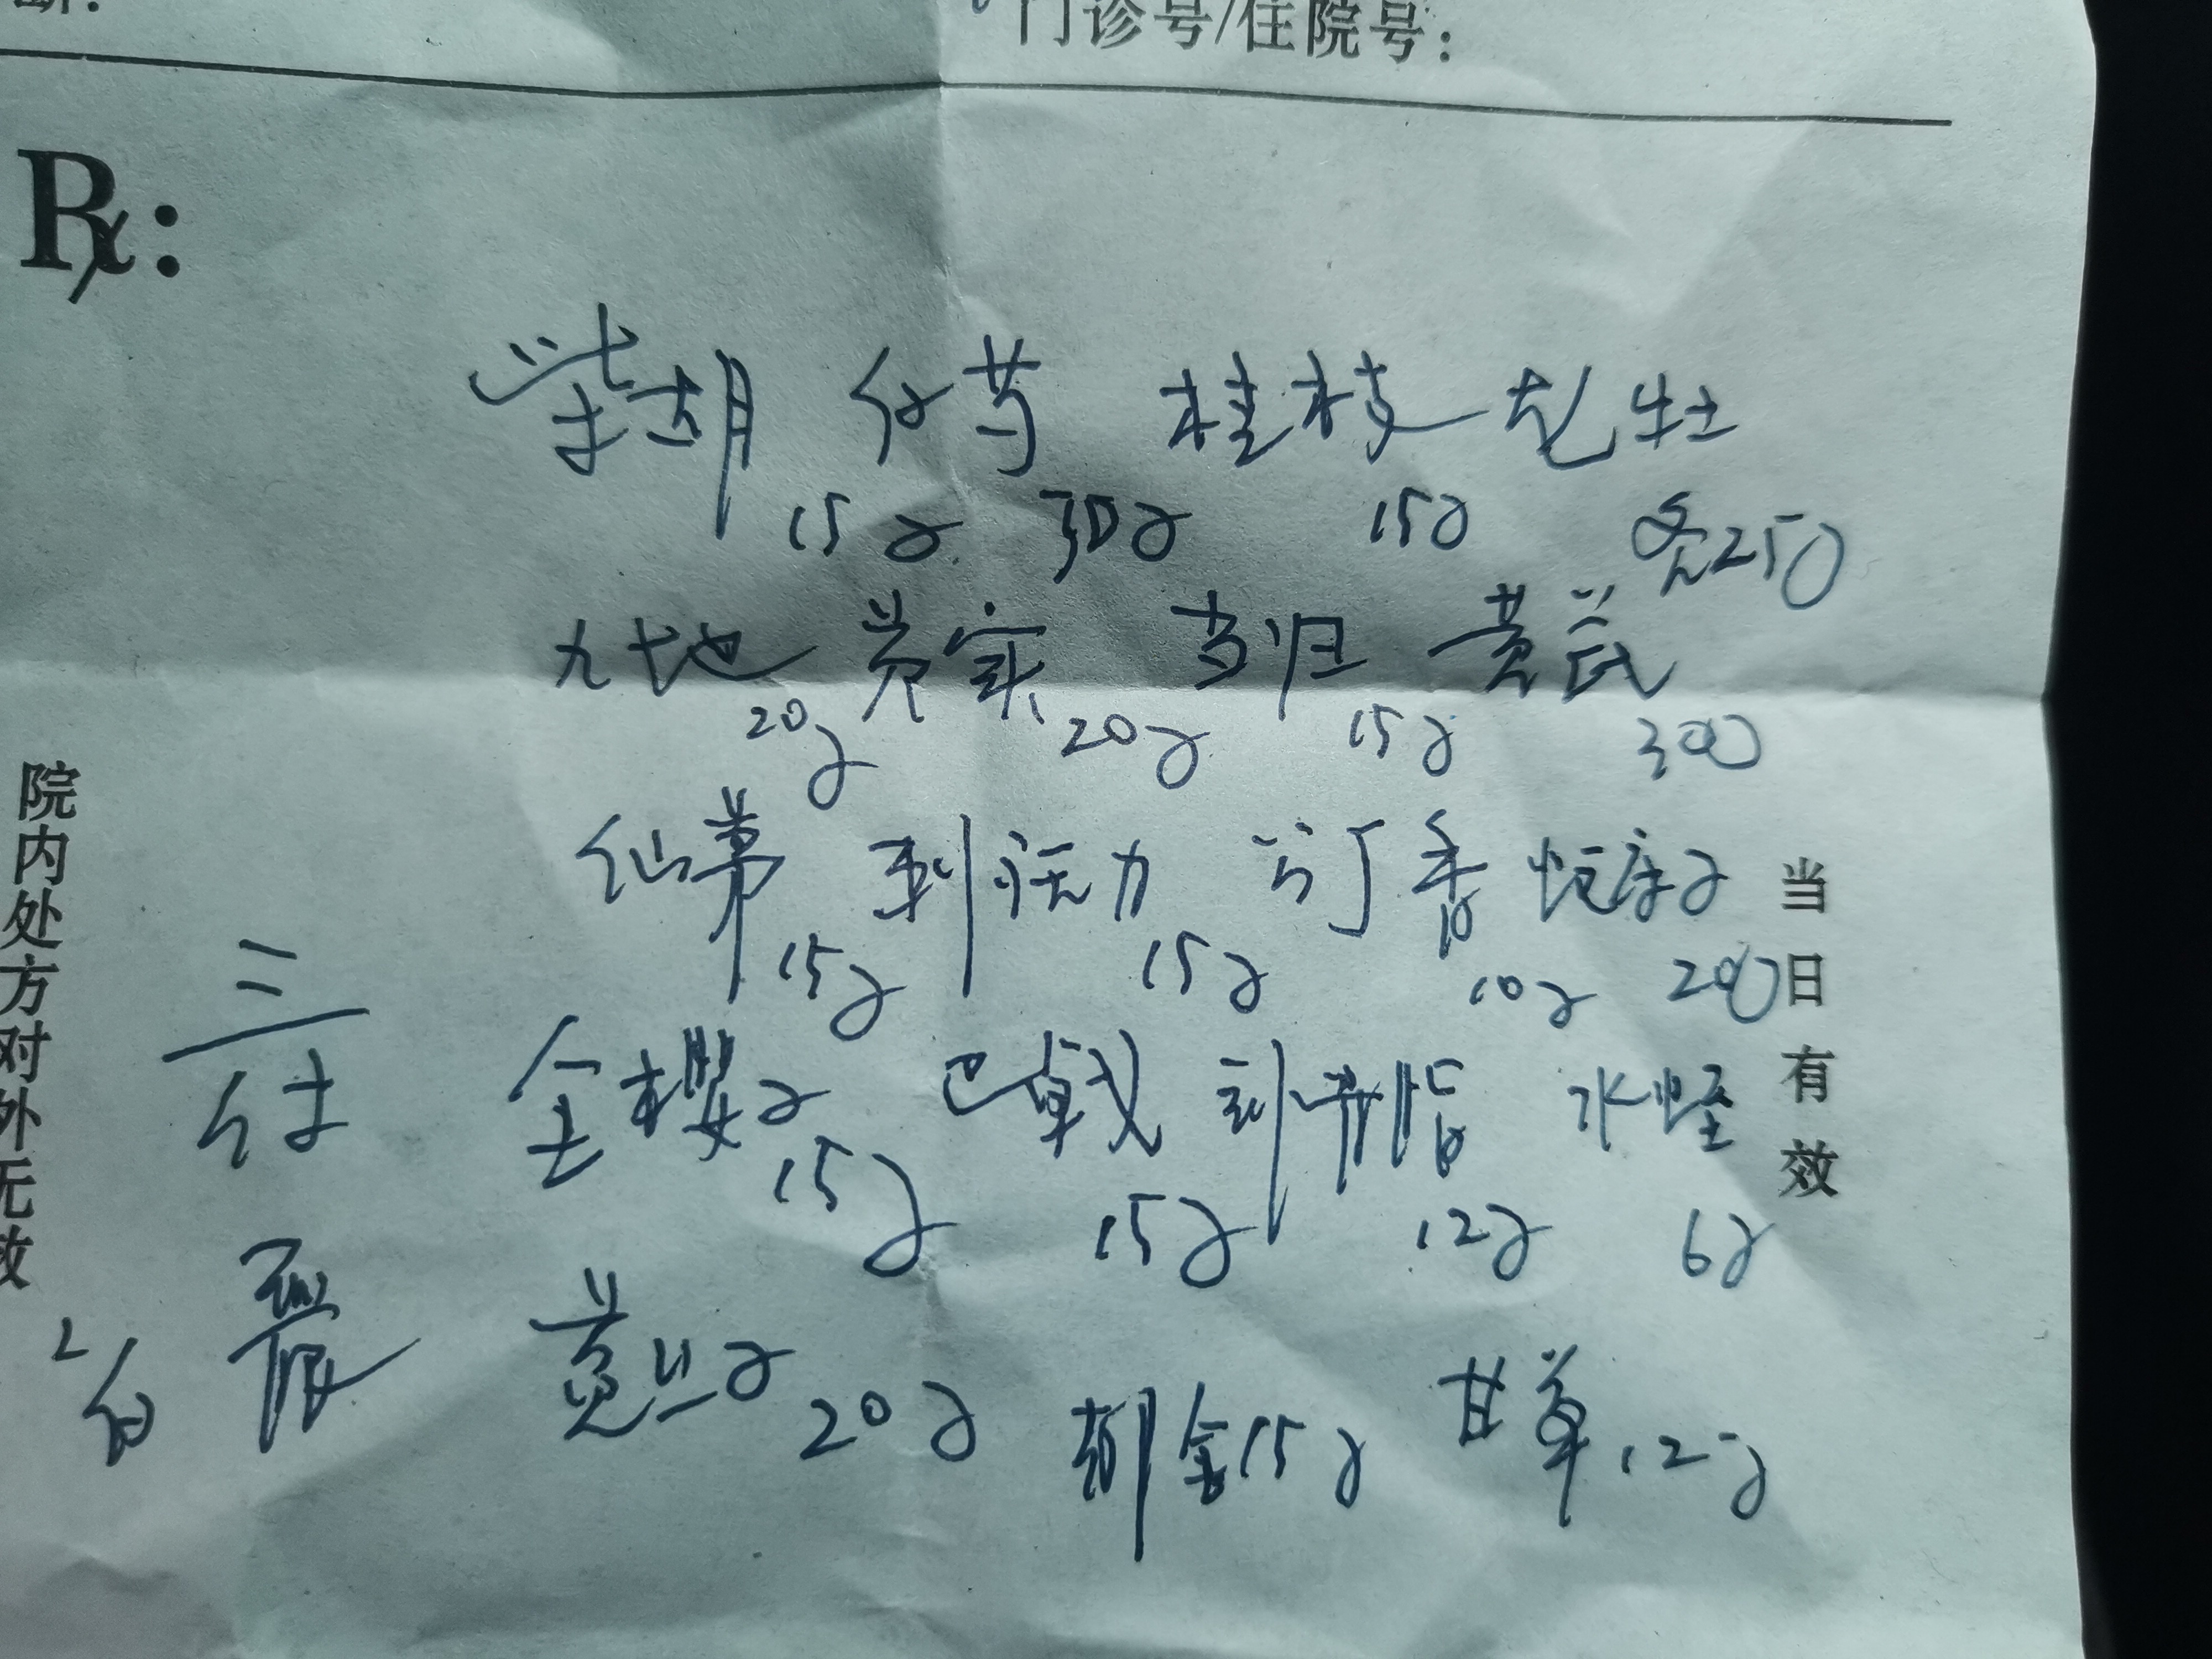 断:
门诊号/住院号:
R:
柴胡 白芍 桂枝 龙牡
15g 30g 15g 各25g
九地 芡实 当归 黄芪
20g 20g 15g 30g
仙茅 刺 公丁香 蛇床子
15g 15g 10g 20g
金樱子 巴戟 水蛭
15g 15g 12g 6g
20g 郁金15g 甘草12g
三付
院内处方对外无效
当日有效